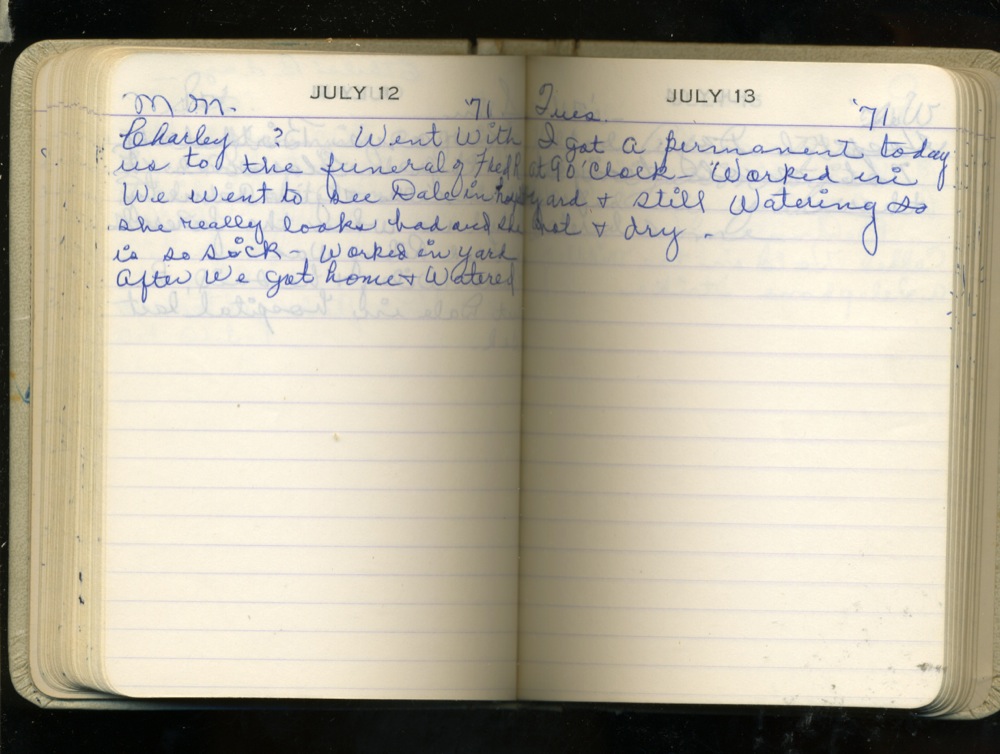 JULY 12
M M. '71
Charley ? Went With
us to the funeral of Fred
We went to see Dale in
she really looks bad and she
is so sick - Worked in yard
After We got home & Watered
JULY 13
Tues. '71
I got a permanent today
at 9 o'clock - Worked in
yard & still Watering so
hot & dry.